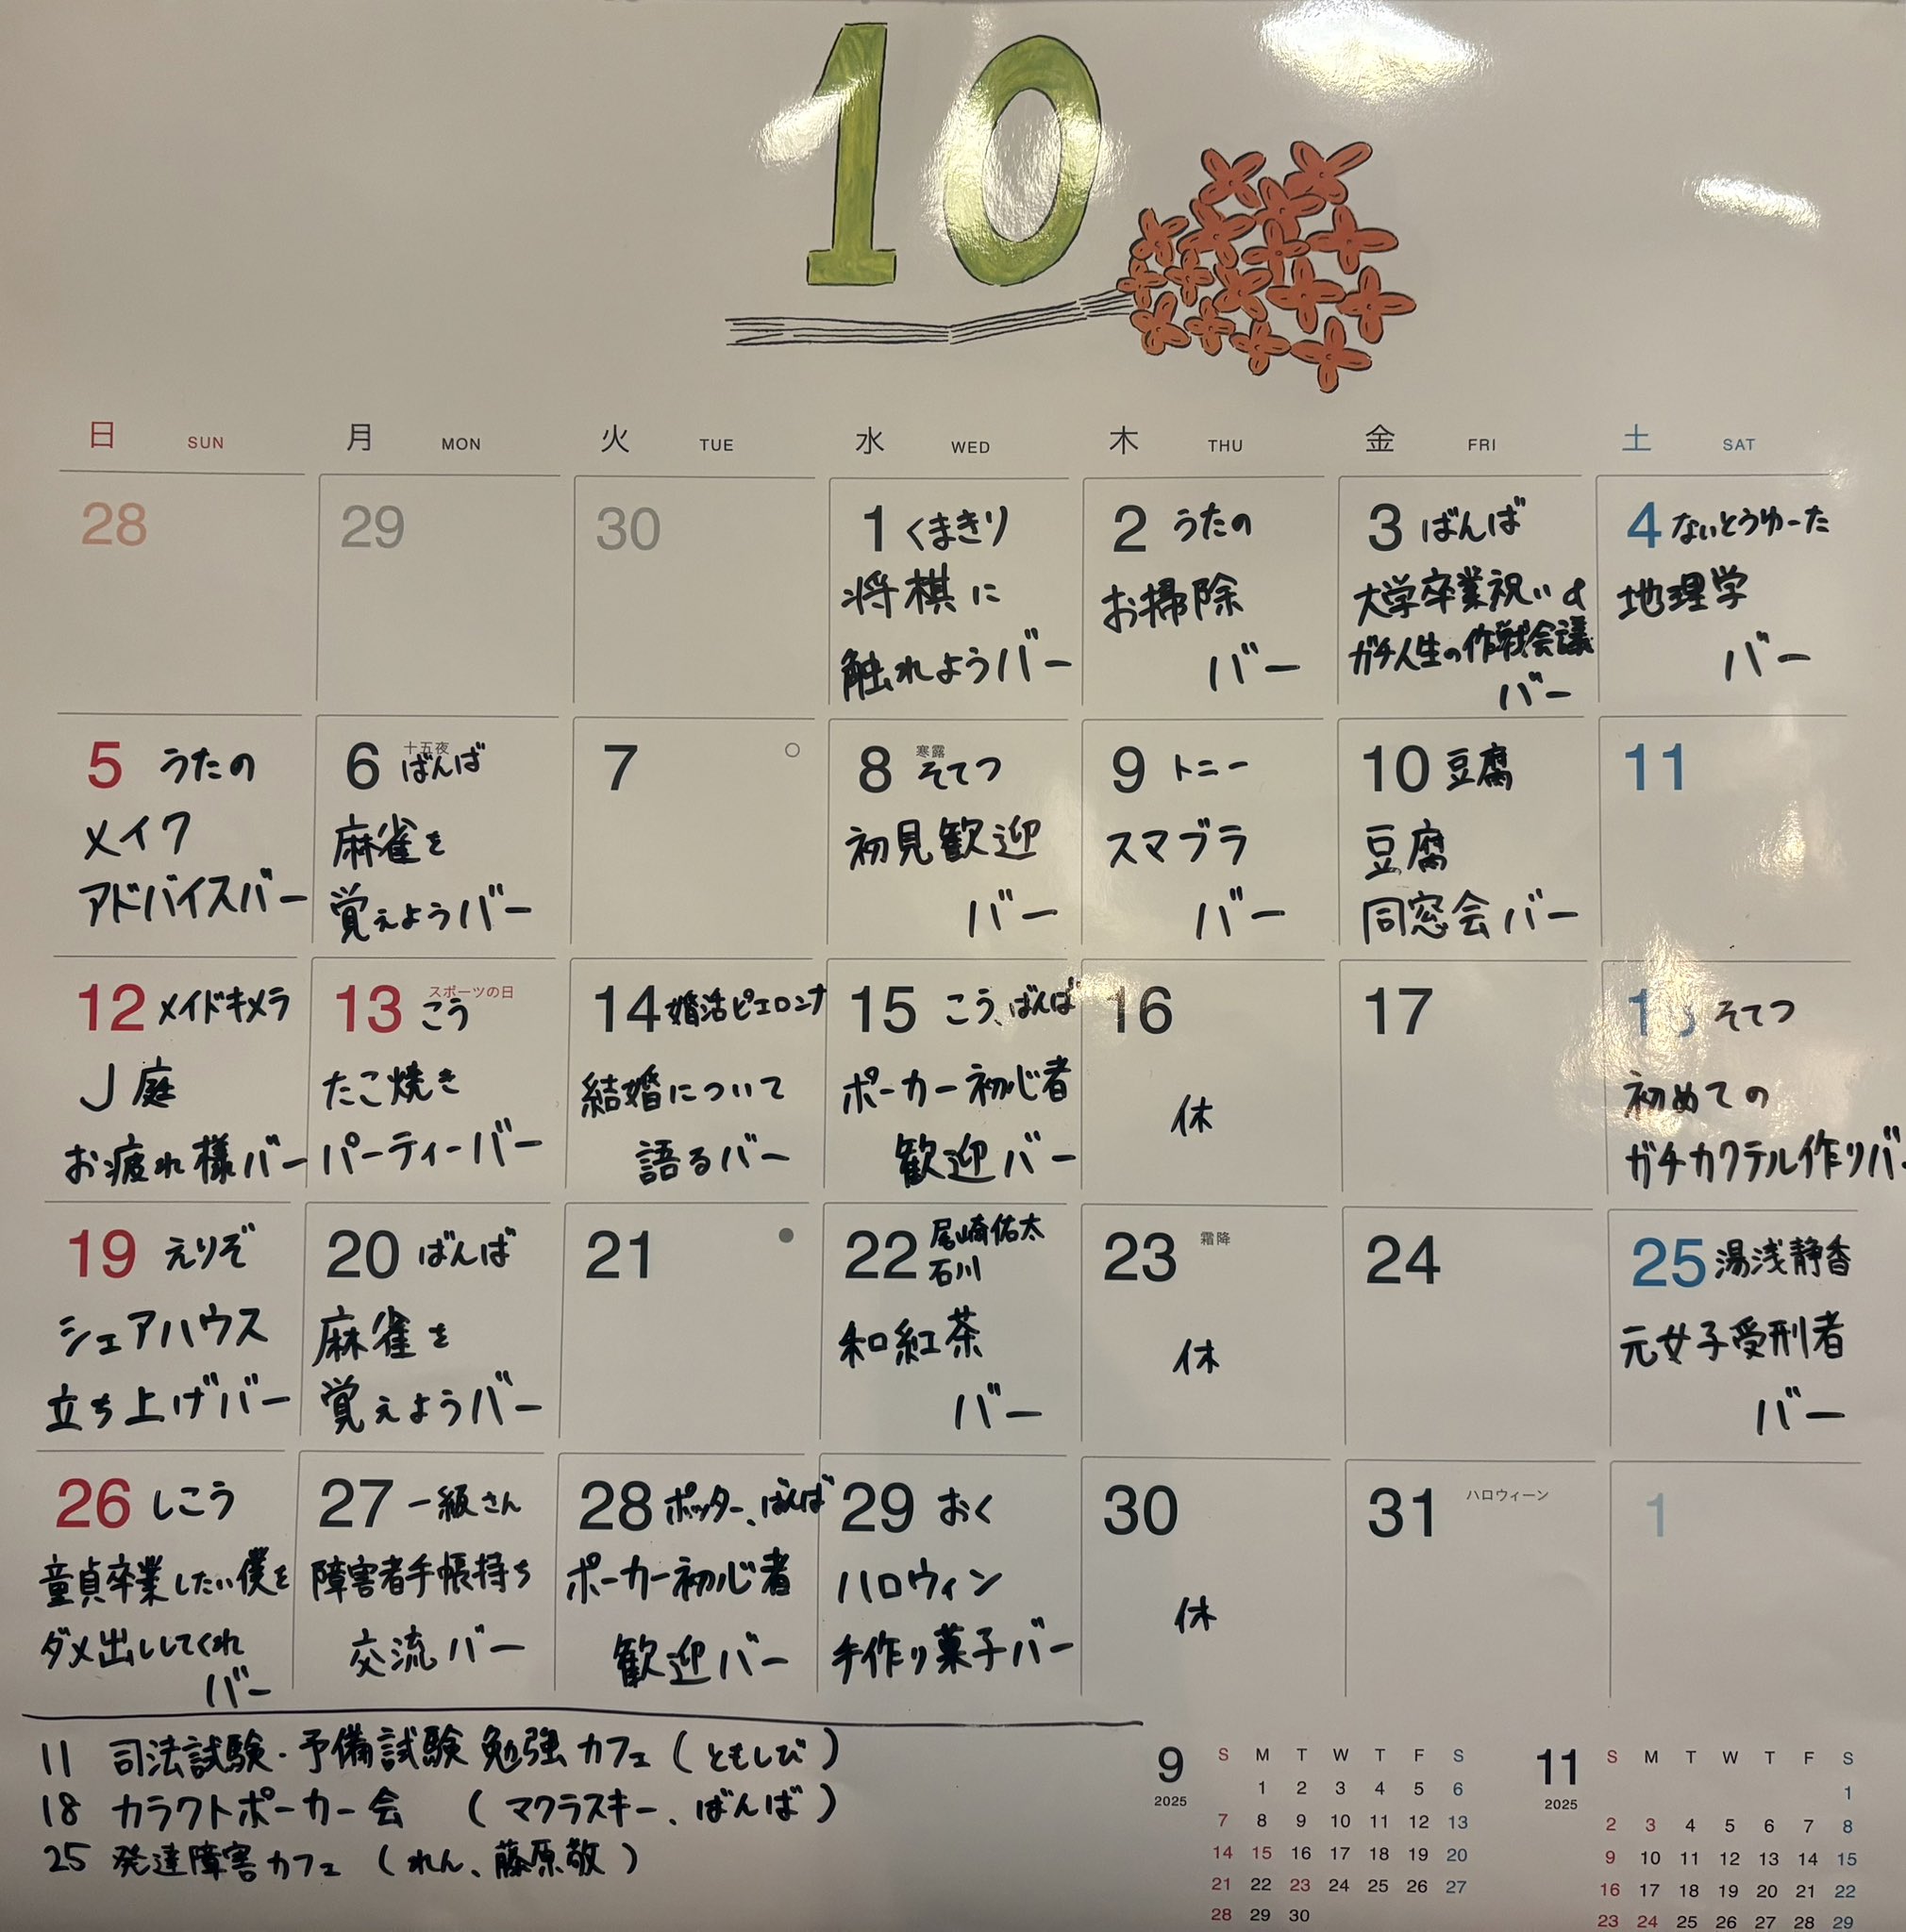 10
日 SUN 月 MON 火 TUE 水 WED 木 THU 金 FRI 土 SAT
28
29
30
1 くまきり
将棋に
触れようバー
2 うたの
お掃除
バー
3 ばんば
大学卒業祝い&
ガチ人生の作戦会議
バー
4 ないとうゆーた
地理学
バー
5 うたの
メイク
アドバイスバー
6 十五夜
ばんば
麻雀を
覚えようバー
7
8 寒露
そてつ
初見歓迎
バー
9 トニー
スマブラ
バー
10 豆腐
豆腐
同窓会バー
11
12 メイドキメラ
J庭
お疲れ様バー
13 スポーツの日
こう
たこ焼き
パーティーバー
14 婚活ピエロンナ
結婚について
語るバー
15 こう、ばんば
ポーカー初心者
歓迎バー
16
休
17
18 そてつ
初めての
ガチカクテル作りバー
19 えりぞ
シェアハウス
立ち上げバー
20 ばんば
麻雀を
覚えようバー
21
22 尾崎佑太
石川
和紅茶
バー
23 霜降
休
24
25 湯浅静香
元女子受刑者
バー
26 しこう
童貞卒業したい僕を
ダメ出ししてくれ
バー
27 一級さん
障害者手帳持ち
交流バー
28 ポッター、ばんば
ポーカー初心者
歓迎バー
29 おく
ハロウィン
手作り菓子バー
30
休
31 ハロウィーン
1
11 司法試験・予備試験 勉強カフェ(ともしび)
18 カラクトポーカー会 (マクラスキー、ばんば)
25 発達障害カフェ (れん、藤原敬)
9
2025
S M T W T F S
1 2 3 4 5 6
7 8 9 10 11 12 13
14 15 16 17 18 19 20
21 22 23 24 25 26 27
28 29 30
11
2025
S M T W T F S
1
2 3 4 5 6 7 8
9 10 11 12 13 14 15
16 17 18 19 20 21 22
23 24 25 26 27 28 29